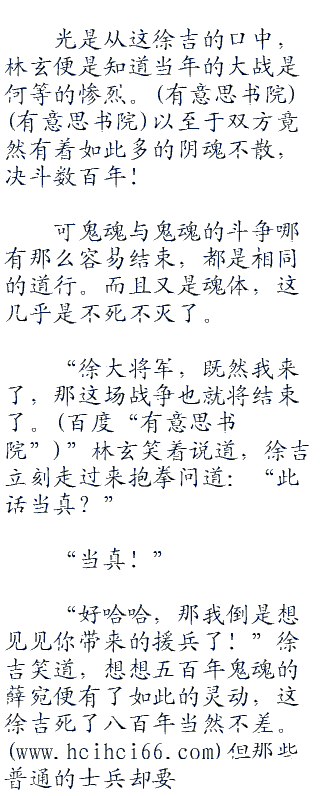 光是从这徐吉的口中，
林玄便是知道当年的大战是
何等的惨烈。(有意思书院)
(有意思书院)以至于双方竟
然有着如此多的阴魂不散，
决斗数百年！
可鬼魂与鬼魂的斗争哪
有那么容易结束，都是相同
的道行。而且又是魂体，这
几乎是不死不灭了。
“徐大将军，既然我来
了，那这场战争也就将结束
了。(百度“有意思书
院”)”林玄笑着说道，徐吉
立刻走过来抱拳问道：“此
话当真？”
“当真！”
“好哈哈，那我倒是想
见见你带来的援兵了！”徐
吉笑道，想想五百年鬼魂的
薛宛便有了如此的灵动，这
徐吉死了八百年当然不差。
(www.hcihci66.com)但那些
普通的士兵却要